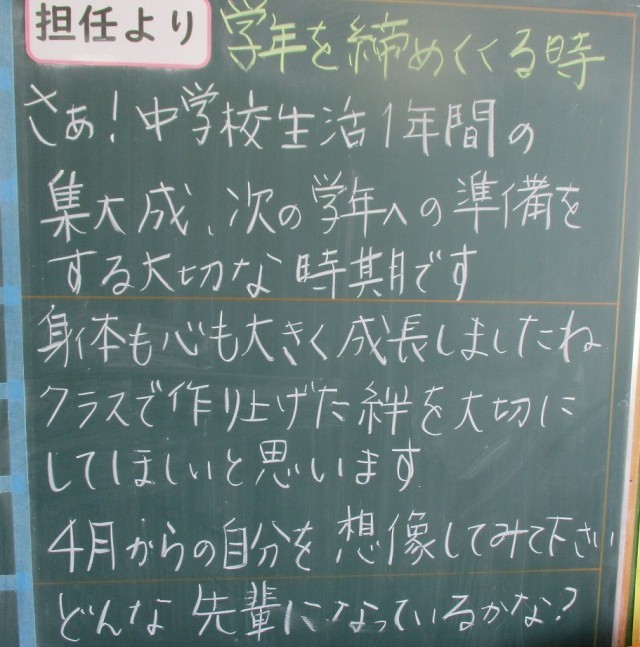 担任より
学年を締めくくる時
さぁ!中学校生活1年間の
集大成、次の学年への準備を
する大切な時期です
身体も心も大きく成長しましたね
クラスで作り上げた絆を大切に
してほしいと思います
4月からの自分を想像してみて下さい
どんな先輩になっているかな?